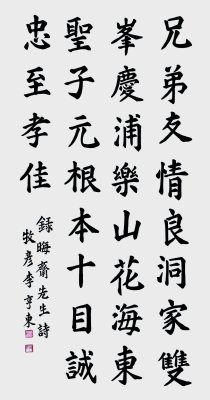 兄弟友情良洞家雙
峯慶浦樂山花海東
聖子元根本十目誠
忠至孝佳
錄晦齋先生詩
牧彦李亨東